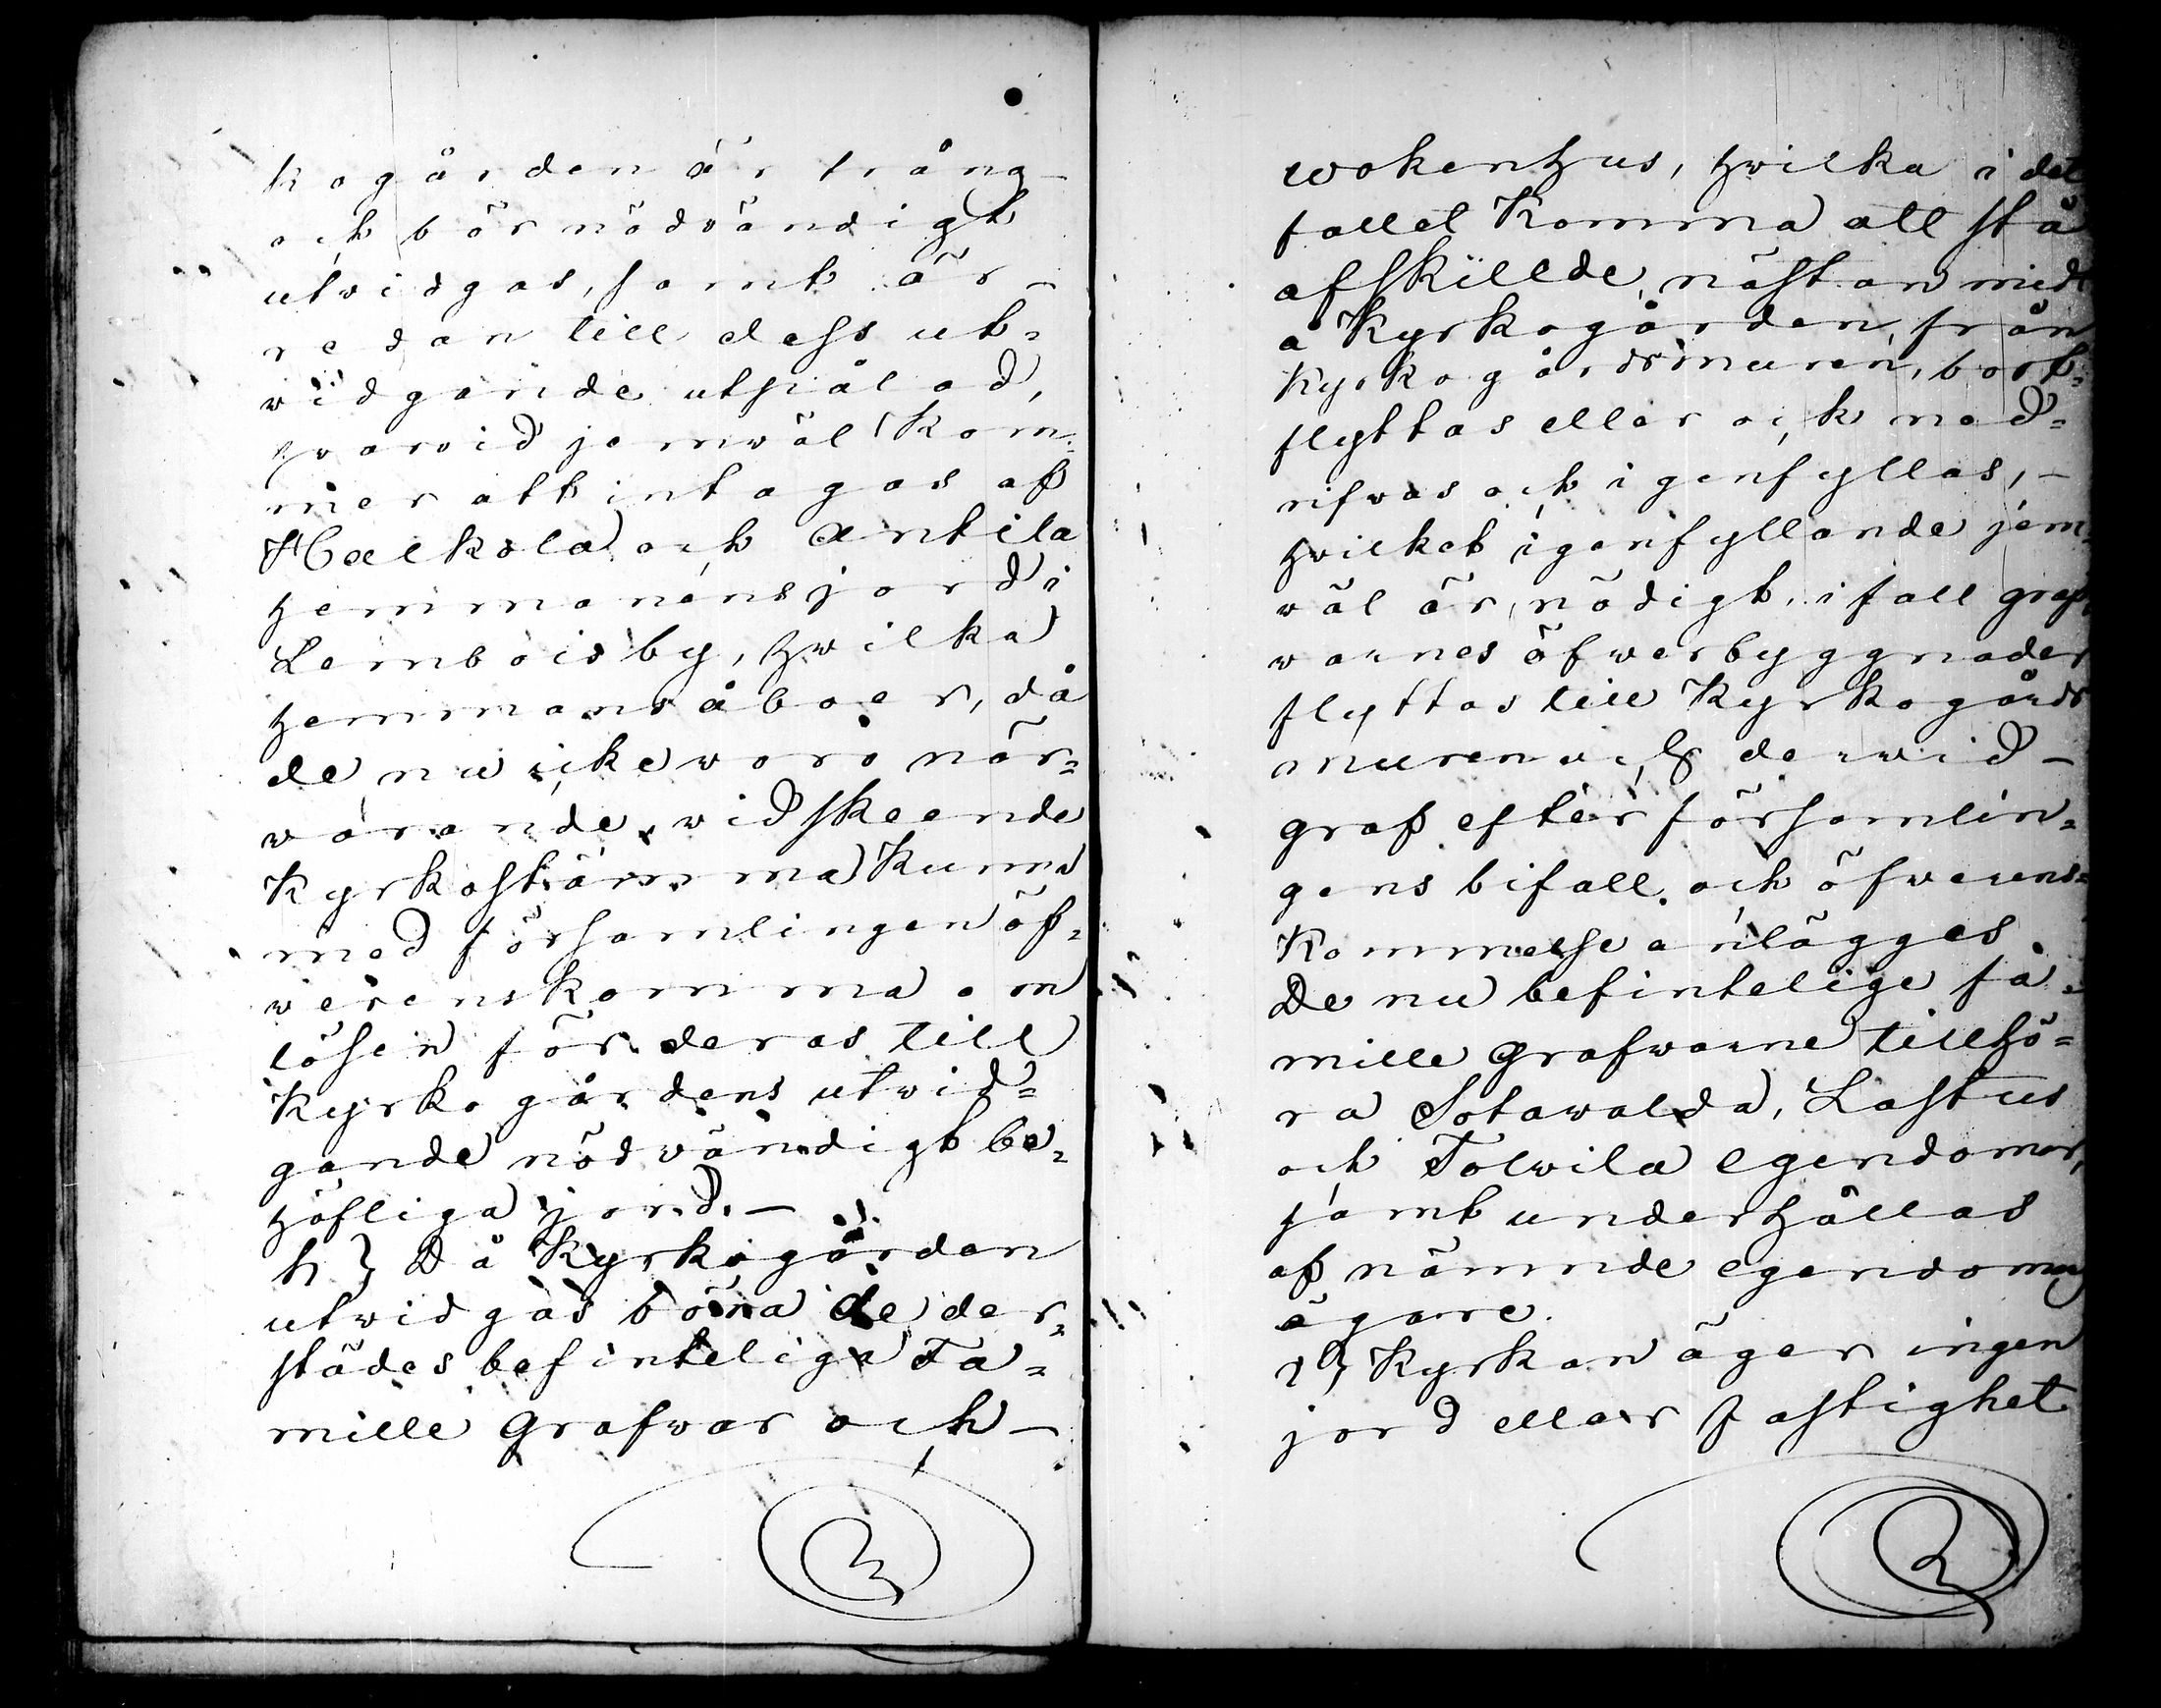 kogården är trång
och bör nödvändigt
utvidgas, samt är
redan till dess ut=
vidgande utpålad,
hvarvid jemwäl kom=
mer att intagas af
Halkola och Antila
hemmanens jord i
Lembois by, hwilka
hemmans åboer, då
de nu icke woro när=
warande, wid skeende
Kyrkostämma kunna
med församlingen öf=
werenskomma om
lösen för deras till
Kyrkogårdens utwid=
gande nödvändigt be=
höfliga jord. —
h) Då Kyrkogården
utwidgas böra de der=
städes befintelige Fa=
mille Grafwar och —
wokenhus, hwilka i det
fallet komma att stå
afskillde, nästan midt
å Kyrkogården, från
Kyrkogårdsmuren, bort=
flyttas eller ock ned=
rifwas och igenfyllas, —
hwilket igenfyllande jem=
wäl är nödigt, ifall graf=
warnes öfwerbyggnader
flyttas till Kyrkogårds
muren och derwid —
graf efter församlin=
gens bifall och öfwerens=
kommelse anlägges.
De nu befintelige fa=
mille grafwarne tillhö=
ra Sotawalda, Lastus
och Tolwila egendomar,
samt underhållas
af nämnde egendomars
ägare.
i) Kyrkan äger ingen
jord eller fastighet